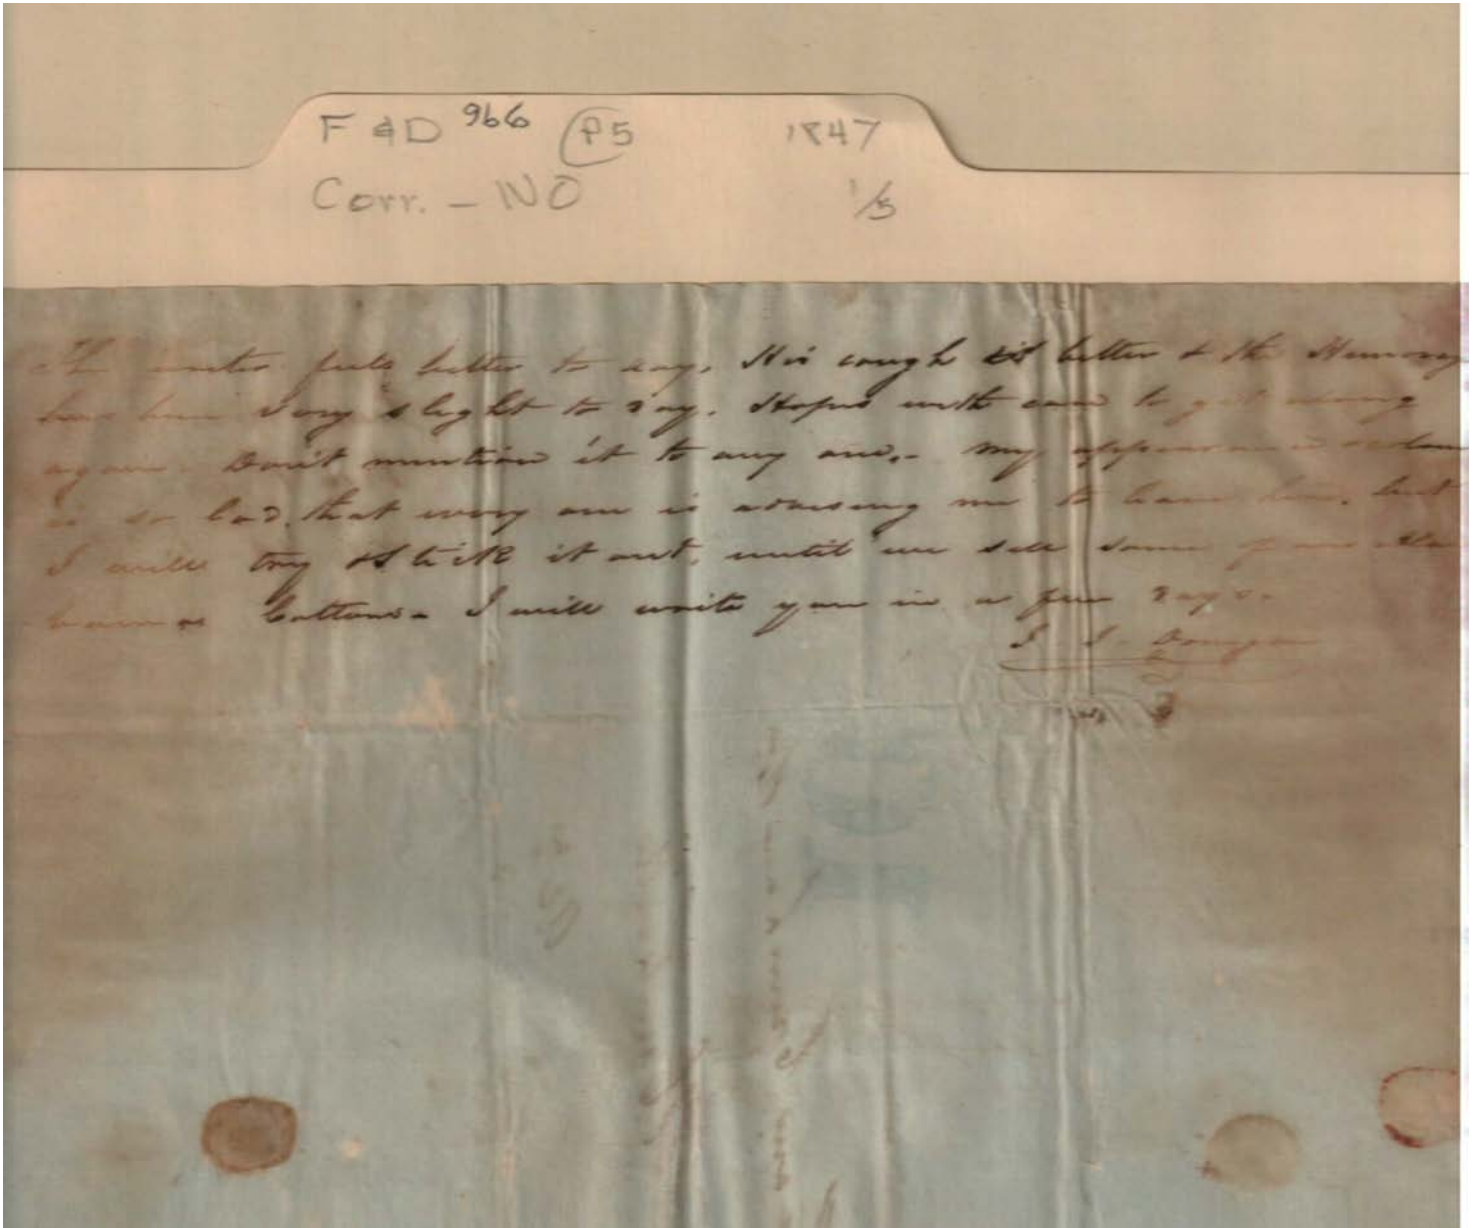 F & D 966 P5 1847
Corr. - NO 1/5
The writer feels better to day, His cough is better & the Hemorag
has been very slight to day. Hopes with care to get along
again. Don't mention it to any one. - My appearance
is so bad, that every one is advising me to leave here, but
I will try & stick it out, until we sell some of our Ala
bama Cotton - I will write you in a few days -